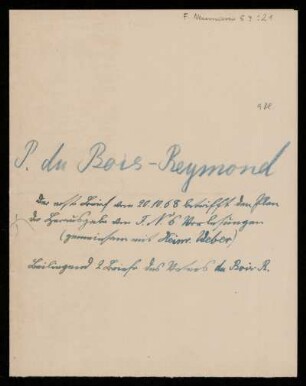 F. Neumann 53 : 21
P. du Bois-Reymond
Der erste Brief vom 20.10.68 betrifft den Plan
der Herausgabe von F. N's Vorlesungen
(gemeinsam mit Heinr. Weber)
Beiliegend 2 Briefe des Vaters du Bois-R.